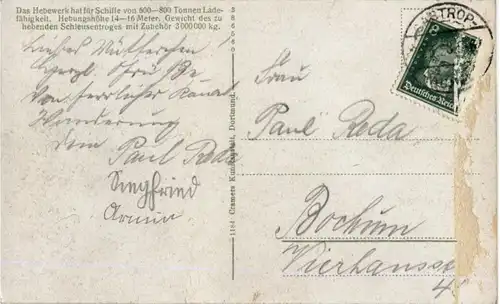 Das Hebewerk hat für Schiffe von 600—800 Tonnen Lade-
fähigkeit. Hebungshöhe 14—16 Meter. Gewicht des zu
hebenden Schleusentroges mit Zubehör 3 000 000 kg.
Liebes Mutterchen
herrlicher Kanal
Wanderung
Paul Reda
Siegfried
Armin.
1184 Cramers Kunstanstalt, Dortmund.
Deutsches Reich
8
Frau
Paul Reda
Bochum
4